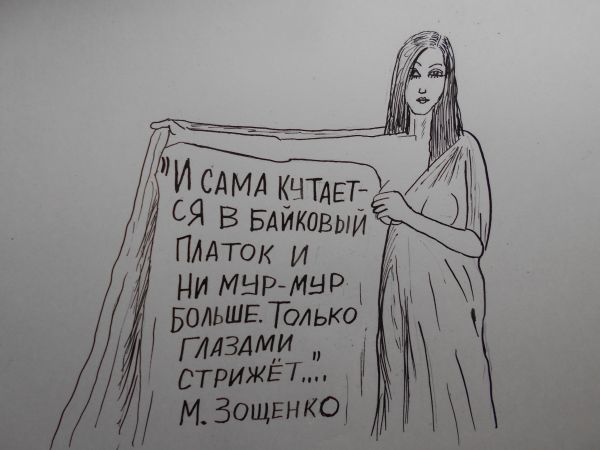 "И САМА КУТАЕТ-
СЯ В БАЙКОВЫЙ
ПЛАТОК И
НИ МУР-МУР
БОЛЬШЕ. ТОЛЬКО
ГЛАЗАМИ
СТРИЖЁТ..."
М. ЗОЩЕНКО